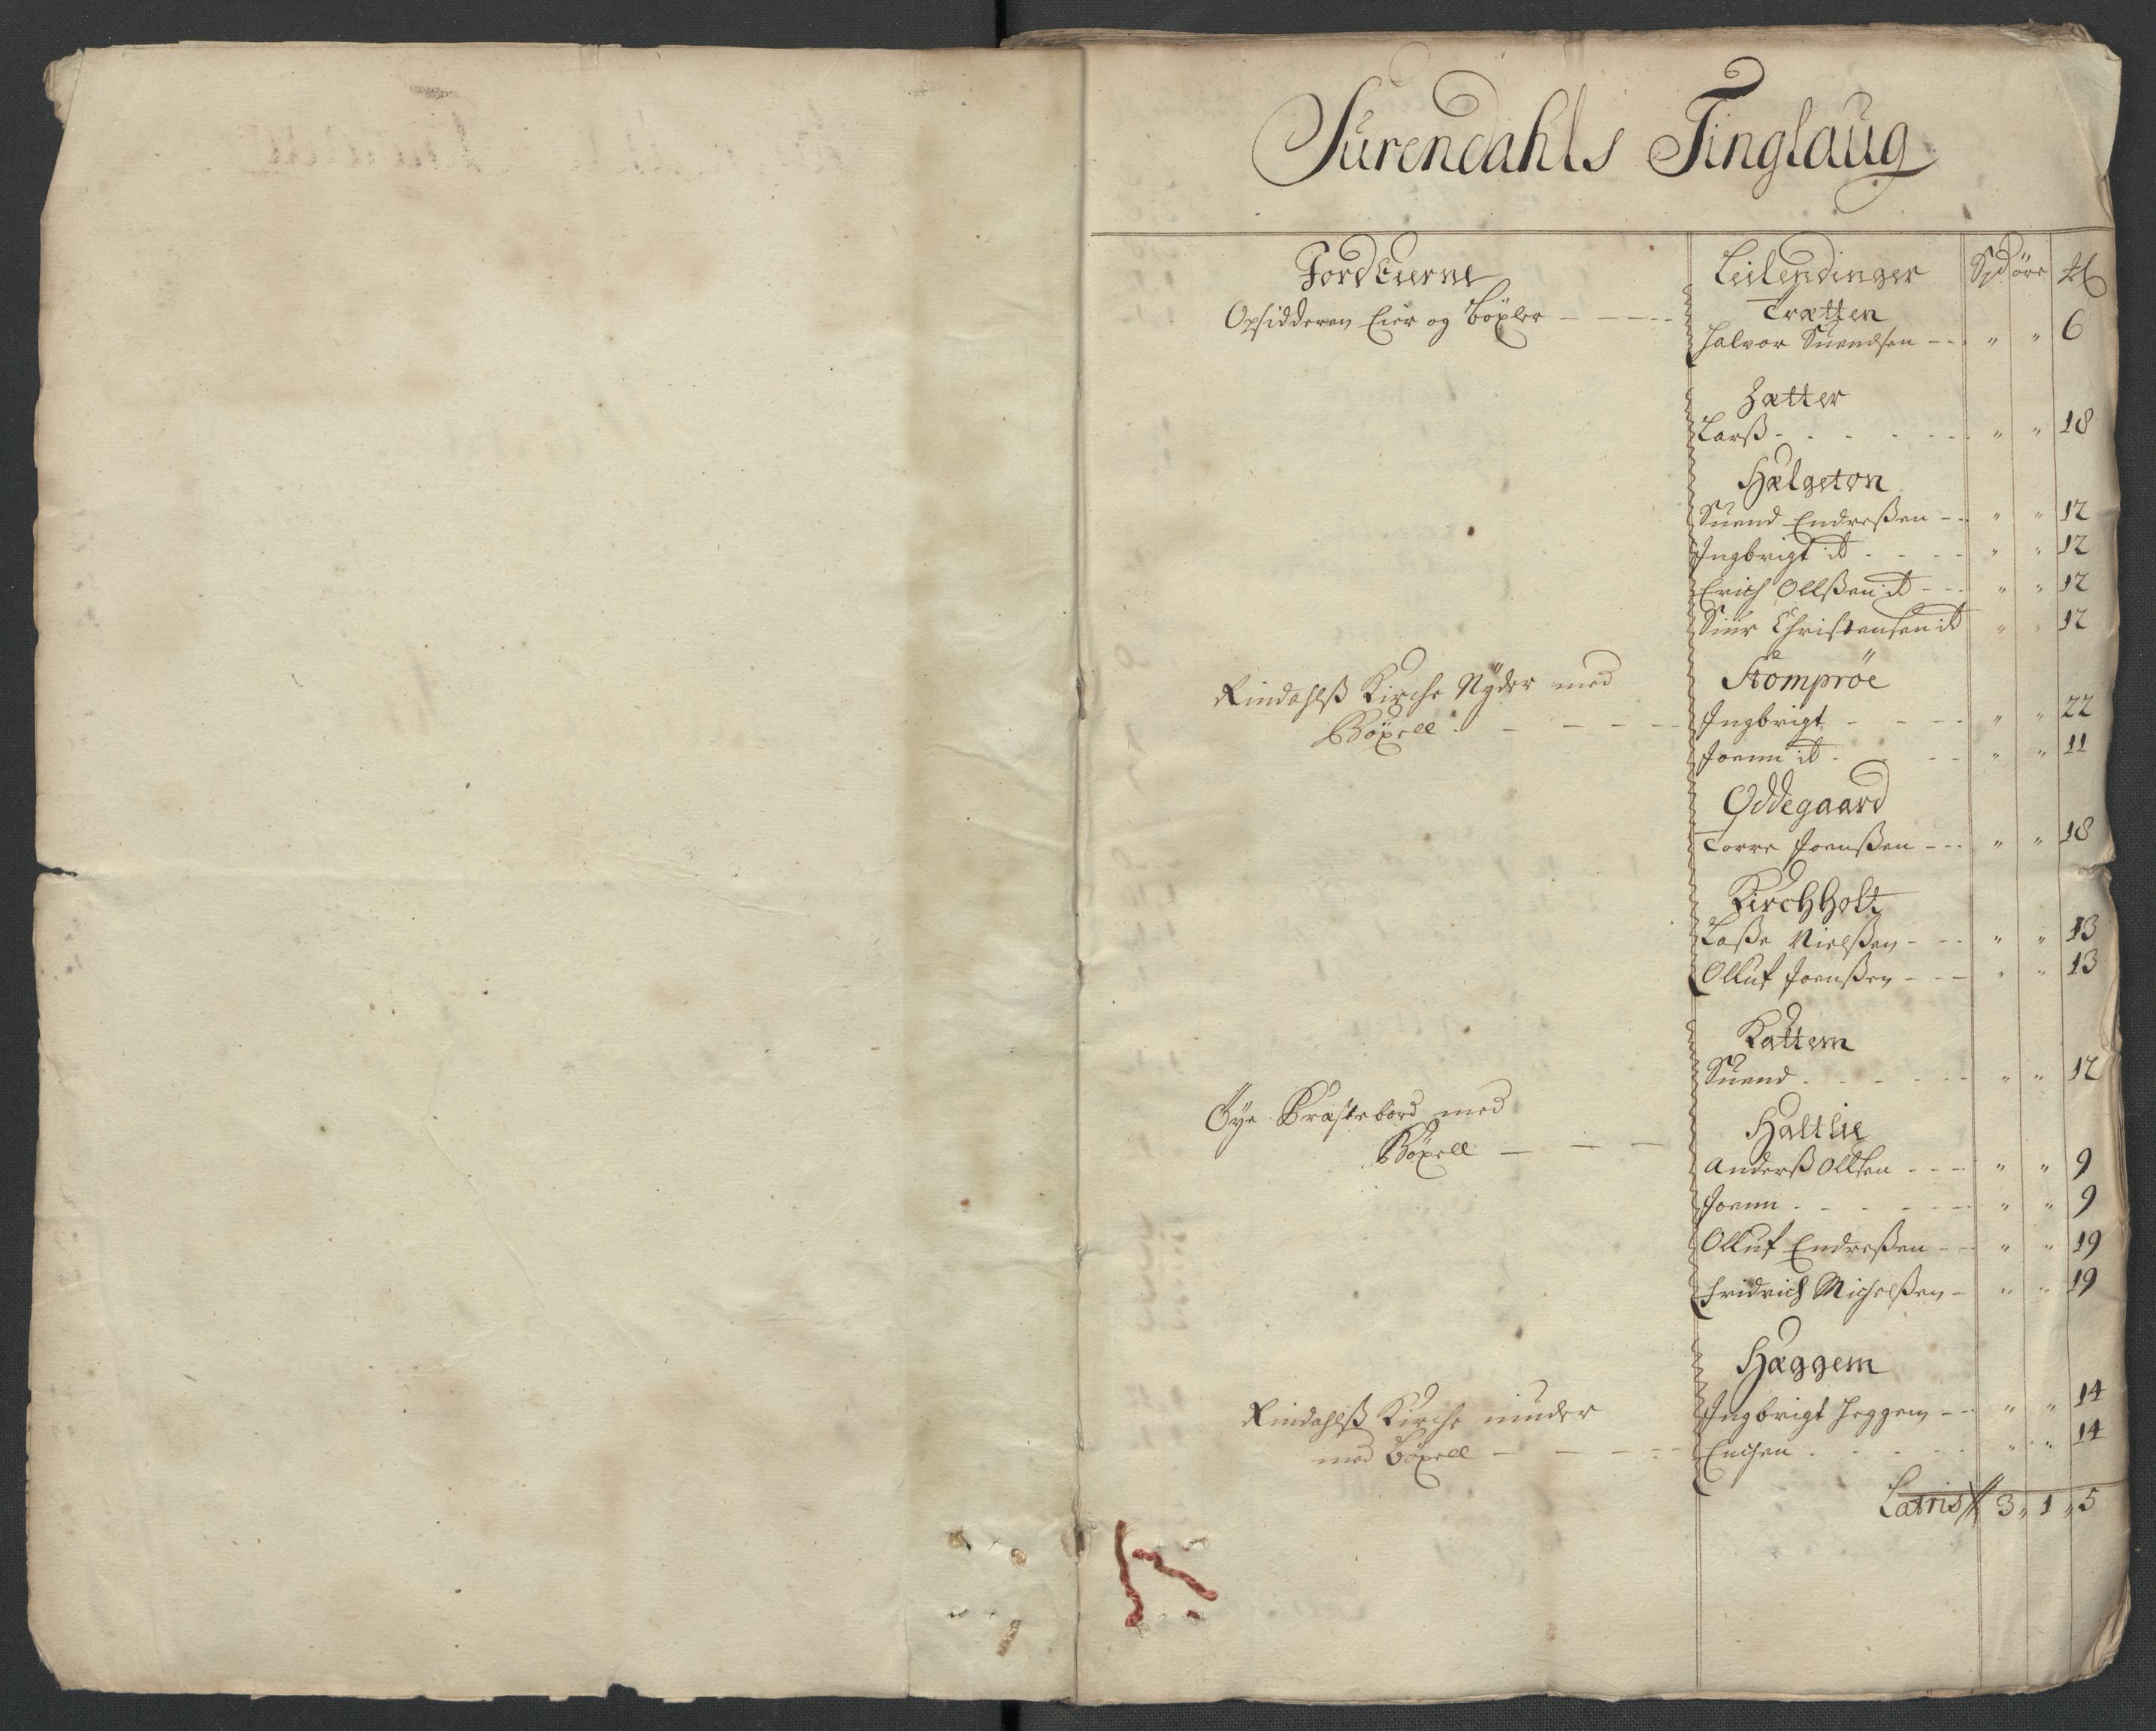 Surendahls Tinglaug
Jord Eierne Leilendinger Spd öre
Trætten
Opsidderen Eier og böxler - - - - Halvor Suendsen - - " " 6
Hætter
Larß - - - - - " " 18
Hælgeton
Suend Endreßen - - " " 12
Ingbrigt id - - - " " 12
Erich Ollßen id - - " " 12
Siur Christensen id " " 12
Stomprøe
Rindahlß Kirche Nyder med
Böxell - - - - Ingbrigt - - - " " 22
Joenn id - - - " " 11
Oddegaard
Torre Joenßen - - - " " 18
Kirchholt
Laße Nielßen - - - " " 13
Olluf Joenßen - - - " " 13
Kattem
Suend - - - - - " " 12
Öye Præstebord med
Böxell - - -
Haltlie
Anderß Ollsen - - - " " 9
Joenn - - - - - " " 9
Olluf Endreßen - - " " 19
Fridrich Michelßen - " " 19
Hæggem
Rindahlß Kirche niuder
med böxell - - - -
Ingbrigt Heggem - - " " 14
Enchen - - - - " " 14
Latris 3 " 1 " 5